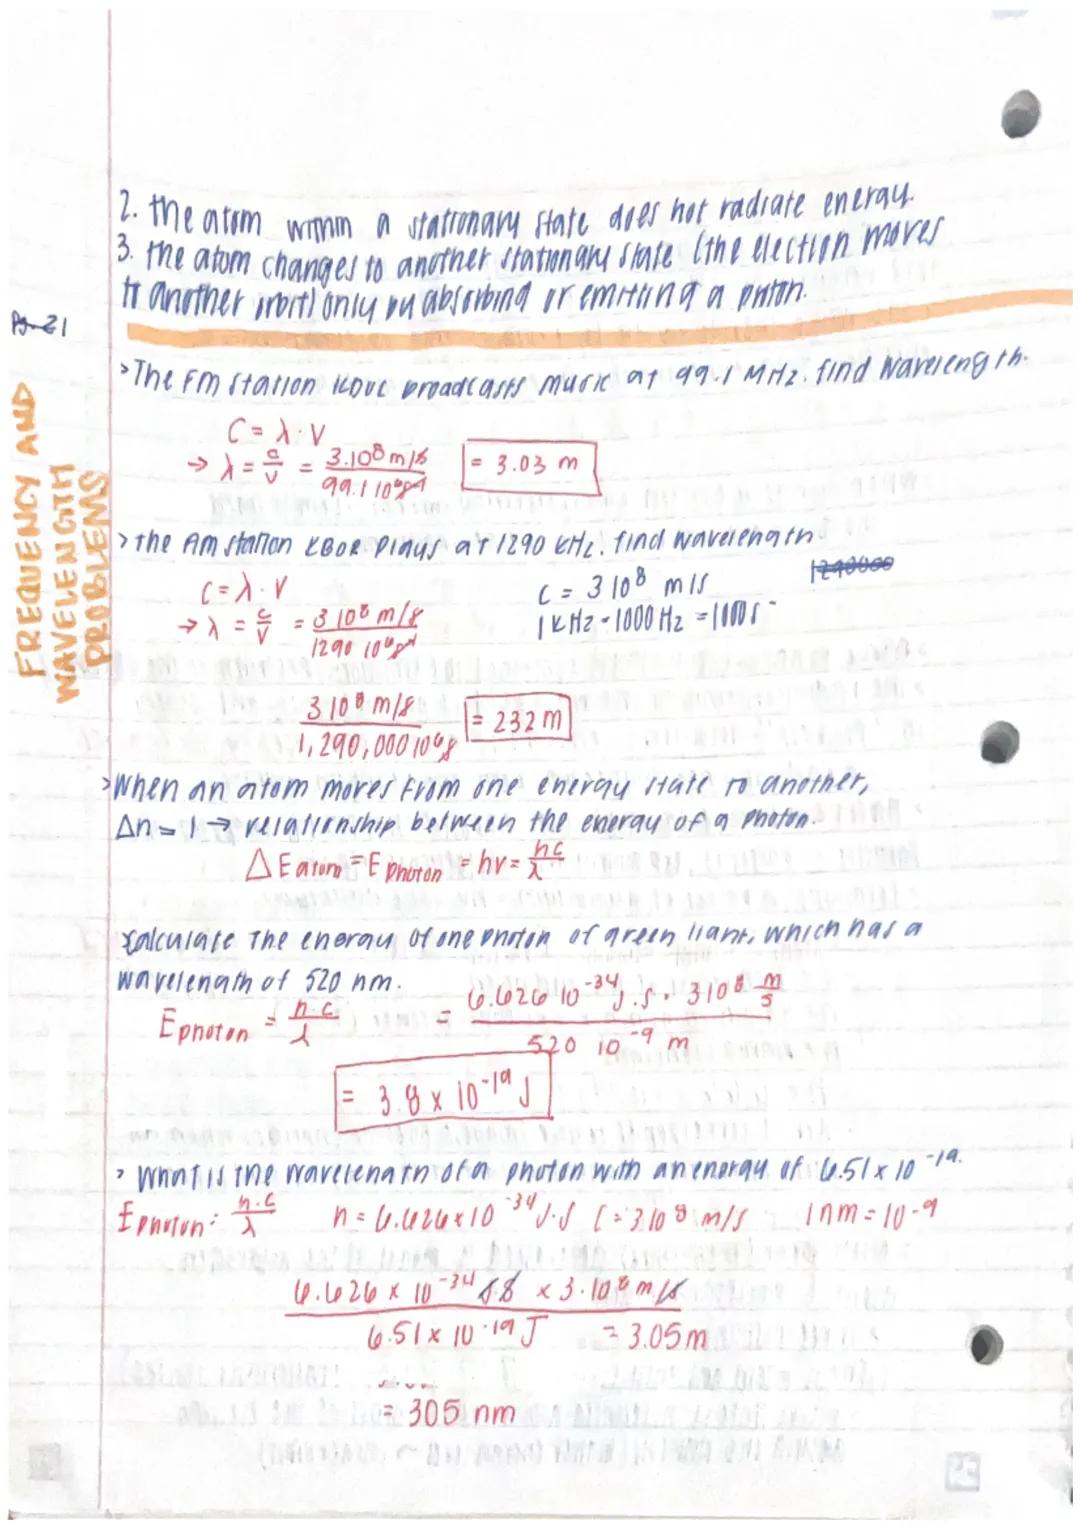 2. the atom within a stationary state does not radiate energy.
3. the atom changes to another stationary state (the electron moves
to another orbit) only by absorbing or emitting a photon.
Pg 31
FREQUENCY AND
WAVELENGTH
PROBLEMS
>The FM station KDUC broadcasts music at 99.1 MHz. find wavelength.
C = λ · V
→ λ = c/v = 3.10⁸ m/s / 99.1 10⁶ s⁻¹ = 3.03 m
> the AM station KBOR Plays at 1290 kHz. find wavelength
1290000
C = λ · V C = 3 10⁸ m/s
→ λ = c/v = 3 10⁸ m/s / 1290 10⁶ s⁻¹ 1 kHz = 1000 Hz = 1000 s⁻
3 10⁸ m/s / 1,290,000 10⁶ s = 232 m
>When an atom moves from one energy state to another,
Δn = 1 → relationship between the energy of a photon.
Δ E atom = E photon = hv = hc/λ
Calculate the energy of one photon of green light, which has a
wavelength of 520 nm.
E photon = h·c/λ = 6.626 10⁻³⁴ J·s · 3 10⁸ m/s / 520 10⁻⁹ m
= 3.8 x 10⁻¹⁹ J
> What is the wavelength of a photon with an energy of 6.51 x 10⁻¹⁹.
E photon = h·c/λ h = 6.626 x 10⁻³⁴ J·s C = 3 10⁸ m/s 1 nm = 10⁻⁹
6.626 x 10⁻³⁴ J·s x 3·10⁸ m/s / 6.51 x 10⁻¹⁹ J = 3.05 m
= 305 nm